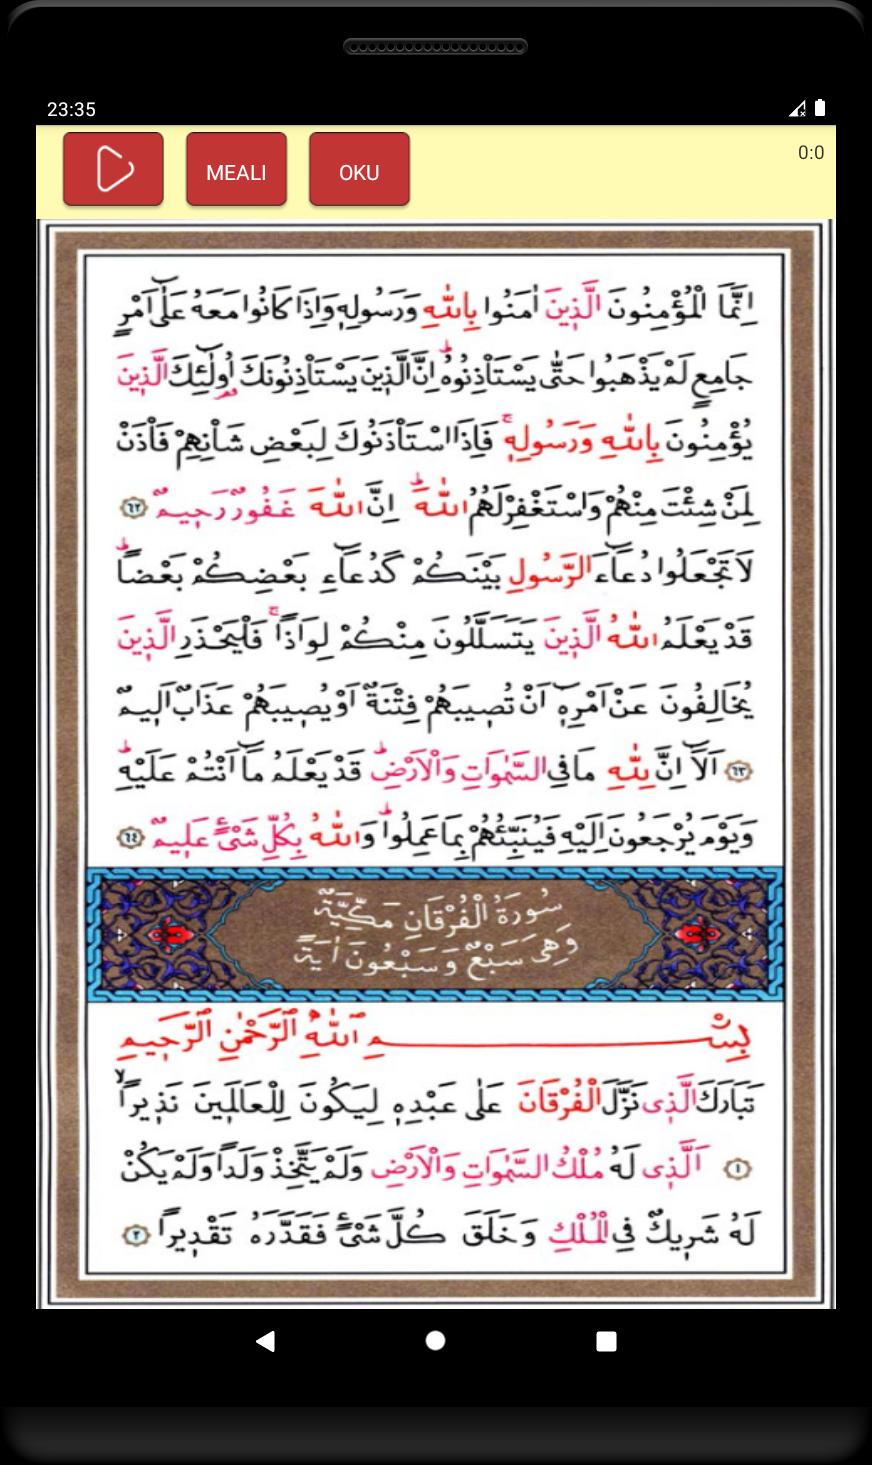 23:35
MEALI
OKU
0:0
اِنَّمَا الْمُؤْمِنُونَ الَّذ۪ينَ اٰمَنُوا بِاللّٰهِ وَرَسُولِه۪ وَاِذَا كَانُوا مَعَهُ عَلٰٓى اَمْرٍ
جَامِعٍ لَمْ يَذْهَبُوا حَتّٰى يَسْتَأْذِنُوهُۜ اِنَّ الَّذ۪ينَ يَسْتَأْذِنُونَكَ اُو۬لٰٓئِكَ الَّذ۪ينَ
يُؤْمِنُونَ بِاللّٰهِ وَرَسُولِه۪ۚ فَاِذَا اسْتَأْذَنُوكَ لِبَعْضِ شَأْنِهِمْ فَأْذَنْ
لِمَنْ شِئْتَ مِنْهُمْ وَاسْتَغْفِرْ لَهُمُ اللّٰهَۜ اِنَّ اللّٰهَ غَفُورٌ رَح۪يمٌ ٦٢
لَا تَجْعَلُوا دُعَٓاءَ الرَّسُولِ بَيْنَكُمْ كَدُعَٓاءِ بَعْضِكُمْ بَعْضًاۜ
قَدْ يَعْلَمُ اللّٰهُ الَّذ۪ينَ يَتَسَلَّلُونَ مِنْكُمْ لِوَاذًاۚ فَلْيَحْذَرِ الَّذ۪ينَ
يُخَالِفُونَ عَنْ اَمْرِه۪ٓ اَنْ تُص۪يبَهُمْ فِتْنَةٌ اَوْ يُص۪يبَهُمْ عَذَابٌ اَل۪يمٌ
٦٣ اَلَٓا اِنَّ لِلّٰهِ مَا فِي السَّمٰوَاتِ وَالْاَرْضِۜ قَدْ يَعْلَمُ مَٓا اَنْتُمْ عَلَيْهِۜ
وَيَوْمَ يُرْجَعُونَ اِلَيْهِ فَيُنَبِّئُهُمْ بِمَا عَمِلُواۜ وَاللّٰهُ بِكُلِّ شَيْءٍ عَل۪يمٌ ٦٤
سُورَةُ الْفُرْقَانِ مَكِّيَّةٌ
وَهِيَ سَبْعٌ وَسَبْعُونَ اٰيَةً
بِسْمِ اللّٰهِ الرَّحْمٰنِ الرَّح۪يمِ
تَبَارَكَ الَّذ۪ي نَزَّلَ الْفُرْقَانَ عَلٰى عَبْدِه۪ لِيَكُونَ لِلْعَالَم۪ينَ نَذ۪يرًاۙ
١ اَلَّذ۪ي لَهُ مُلْكُ السَّمٰوَاتِ وَالْاَرْضِ وَلَمْ يَتَّخِذْ وَلَدًا وَلَمْ يَكُنْ
لَهُ شَر۪يكٌ فِي الْمُلْكِ وَخَلَقَ كُلَّ شَيْءٍ فَقَدَّرَهُ تَقْد۪يرًا ٢